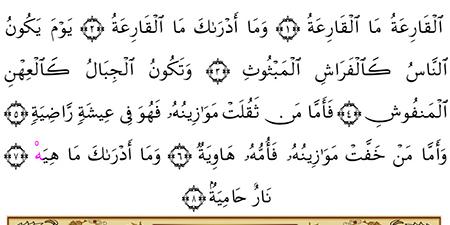 ٱلْقَارِعَةُ مَا ٱلْقَارِعَةُ ﴿١﴾ وَمَآ أَدْرَىٰكَ مَا ٱلْقَارِعَةُ ﴿٢﴾ يَوْمَ يَكُونُ
ٱلنَّاسُ كَٱلْفَرَاشِ ٱلْمَبْثُوثِ ﴿٣﴾ وَتَكُونُ ٱلْجِبَالُ كَٱلْعِهْنِ
ٱلْمَنفُوشِ ﴿٤﴾ فَأَمَّا مَن ثَقُلَتْ مَوَٰزِينُهُۥ فَهُوَ فِى عِيشَةٍ رَّاضِيَةٍ ﴿٥﴾
وَأَمَّا مَنْ خَفَّتْ مَوَٰزِينُهُۥ فَأُمُّهُۥ هَاوِيَةٌ ﴿٦﴾ وَمَآ أَدْرَىٰكَ مَا هِيَهْ ﴿٧﴾
نَارٌ حَامِيَةٌۢ ﴿٨﴾